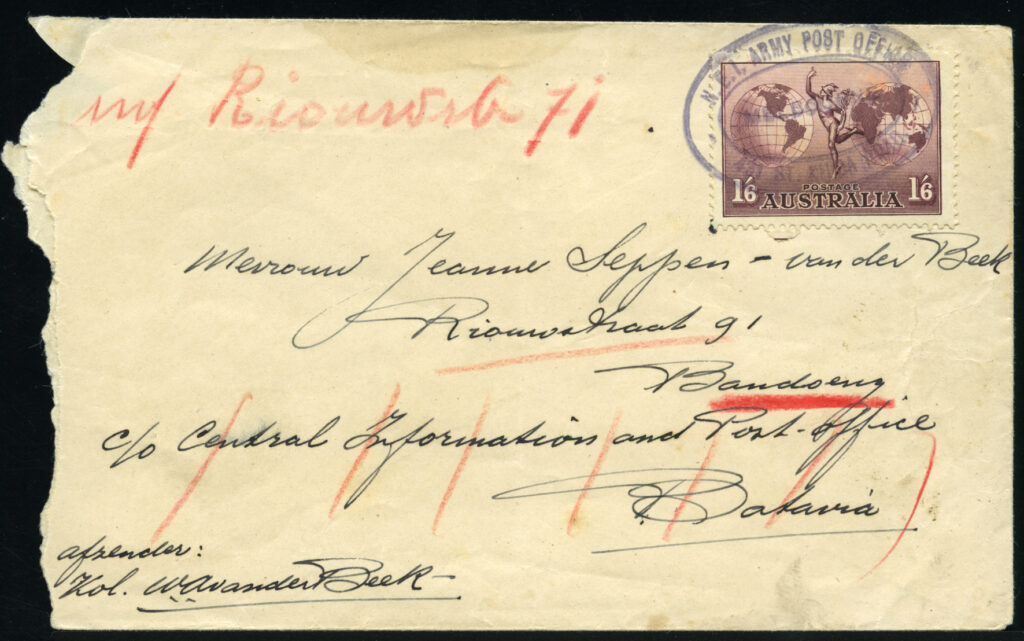 N.E.I. ARMY POST OFFICE
POSTAGE
1/6 AUSTRALIA 1/6
Riouwstr 71
Mevrouw Jeanne Seppen - van der Beek
Riouwstraat 91
Bandoeng
c/o Central Information and Post-Office
Batavia
afzender:
Kol. W.A. van der Beek